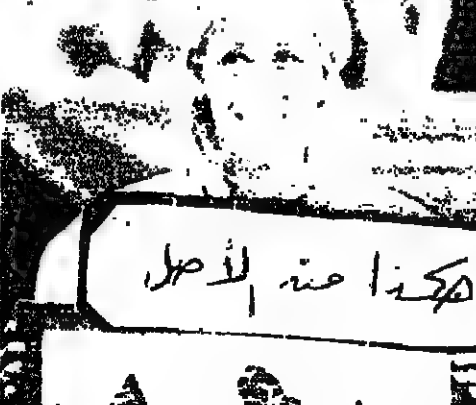 هكذا منه الأصل